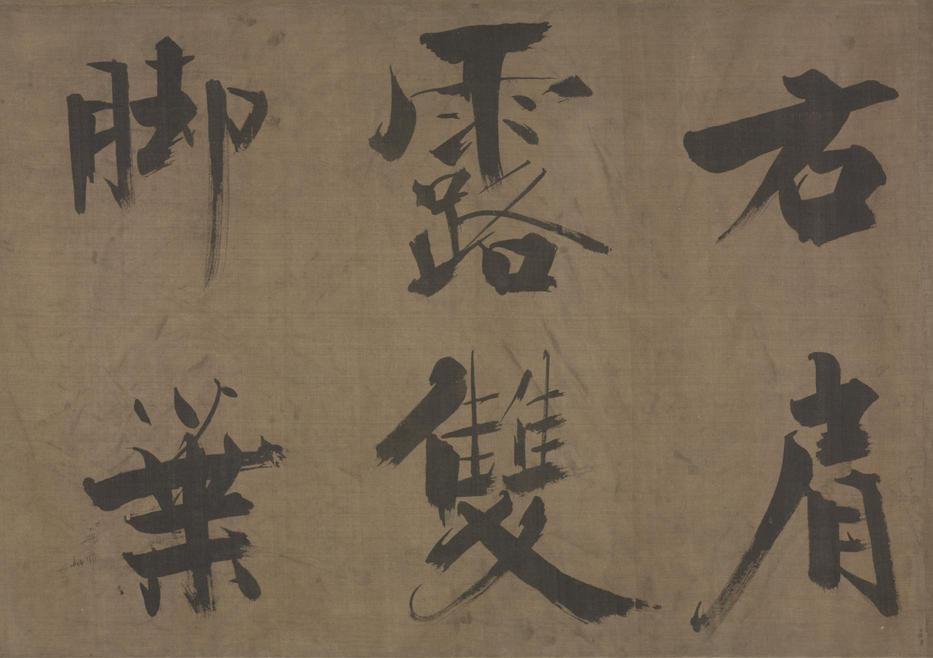 右肩
露雙
脚葉